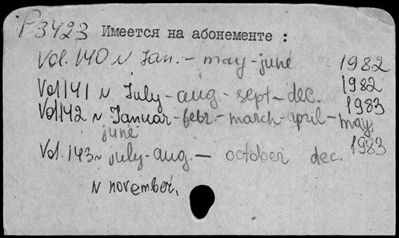 P3423 Имеется на абонементе :
Vol. 140 N Jan. - may-june 1982
Vol 141 N July-aug-sept-dec. 1982
Vol 142 N Januar-febr-march-april-may, 1983
june
Vol. 143 N july-aug. - october dec. 1983
N november,